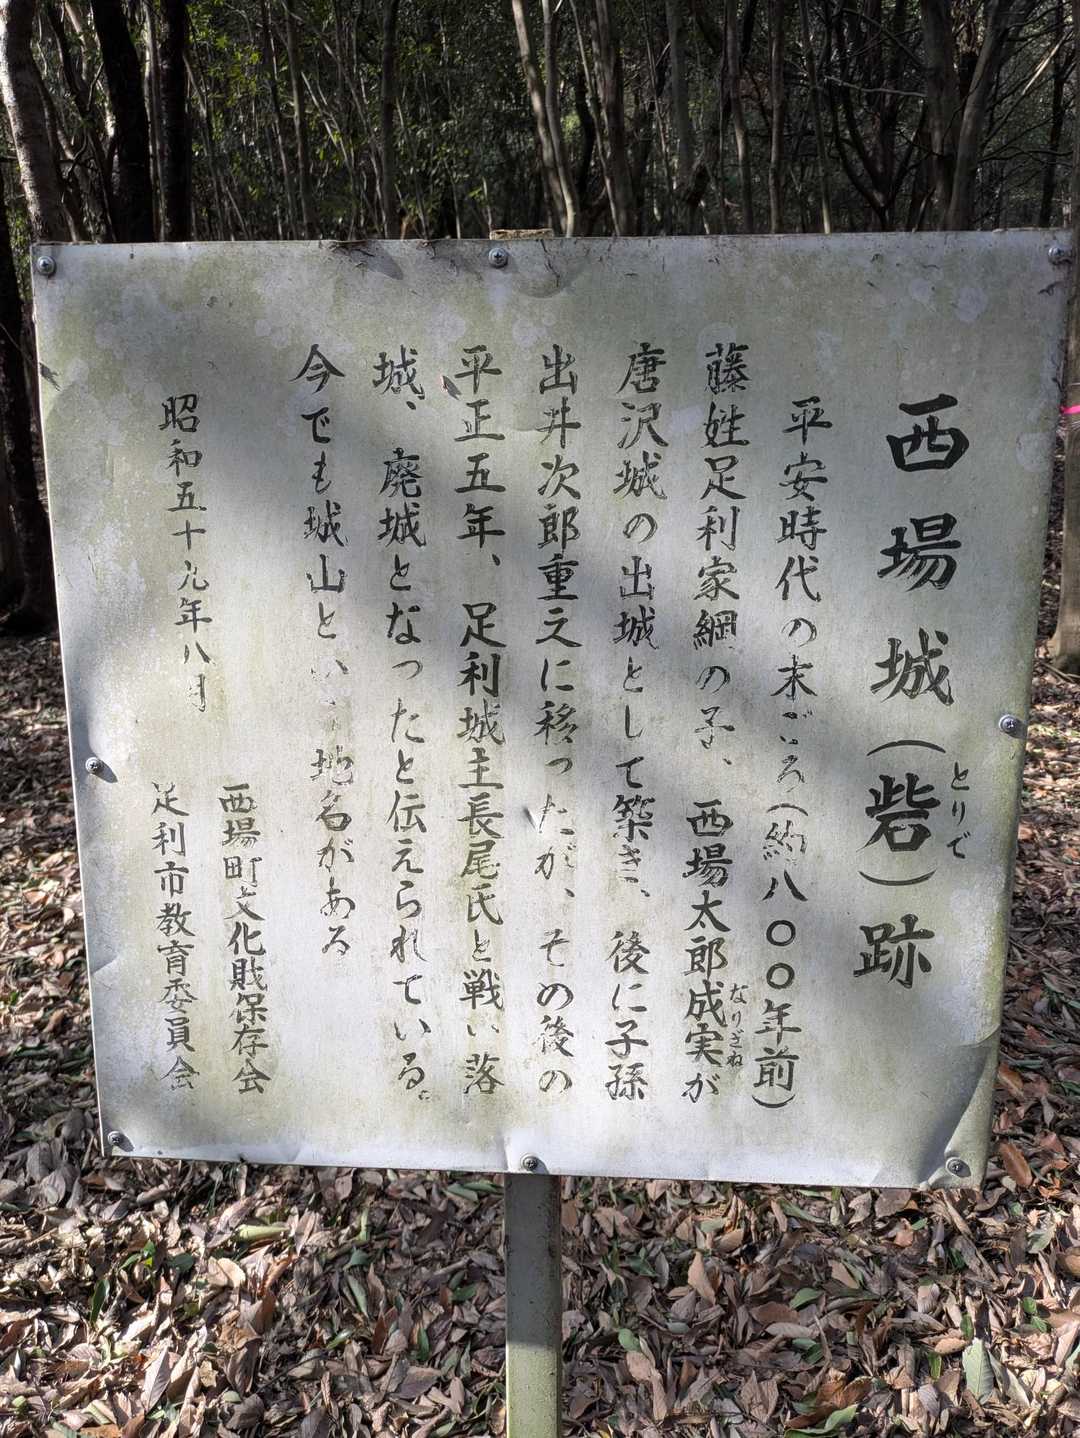 西場城(砦)跡
とりで
平安時代の末ごろ(約八〇〇年前)
藤姓足利家綱の子、西場太郎成実が
なりざね
唐沢城の出城として築き、後に子孫
出井次郎重之に移ったが、その後の
平正五年、足利城主長尾氏と戦い落
城、廃城となったと伝えられている。
今でも城山という地名がある
昭和五十九年八月
西場町文化財保存会
足利市教育委員会